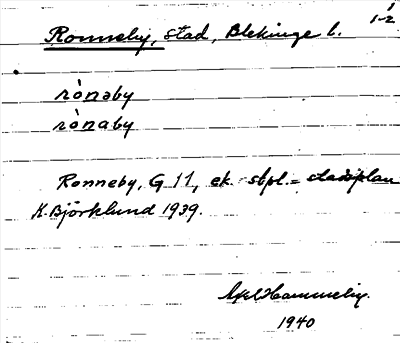 Ronneby, stad, Blekinge l. 1-2
rònəby
rònaby
Ronneby, G 11, ek. sbpl. = stadsplan
K. Björklund 1939.
Axel Hammelin.
1940